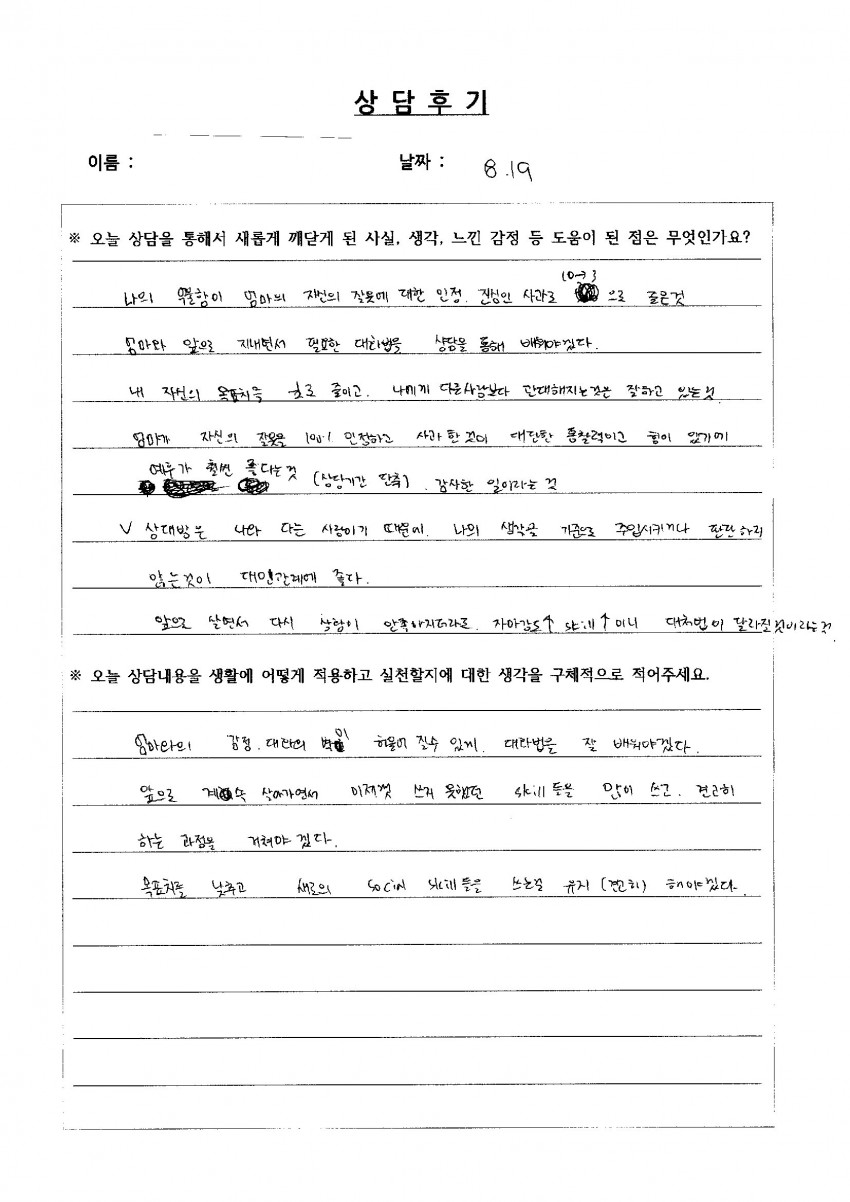 상 담 후 기
이름 :
날짜 : 8.19
※ 오늘 상담을 통해서 새롭게 깨닫게 된 사실, 생각, 느낀 감정 등 도움이 된 점은 무엇인가요?
10→3
나의 우울함이 엄마의 자신의 잘못에 대한 인정. 진심인 사과로 으로 줄은것
엄마와 앞으로 지내면서 필요한 대화법을 상담을 통해 배워야겠다.
내 자신의 목표치를 로 줄이고. 나에게 다른사람보다 관대해지는것은 잘하고 있는것
엄마가 자신의 잘못을 100% 인정하고 사과한것이 대단한 통찰력이고 힘이 있기에
예후가 훨씬 좋다는것 (상담기간 단축). 감사한 일이라는 것
V 상대방은 나와 다른 사람이기 때문에. 나의 생각을 기준으로 주입시키거나 판단하지
않는것이 대인관계에 좋다.
앞으로 살면서 다시 상황이 안좋아지더라도. 자아강도↑ skill↑ 이니 대처법이 달라질것이라는것
※ 오늘 상담내용을 생활에 어떻게 적용하고 실천할지에 대한 생각을 구체적으로 적어주세요.
엄마와의 감정. 대화의 벽이 허물어 질수 있게. 대화법을 잘 배워야겠다.
앞으로 계속 살아가면서 이제껏 쓰지 못했던 skill들을 많이 쓰고. 견고히
하는 과정을 거쳐야 겠다.
목표치를 낮추고 새로의 social skill들을 쓰는걸 유지 (견고히) 해야겠다.